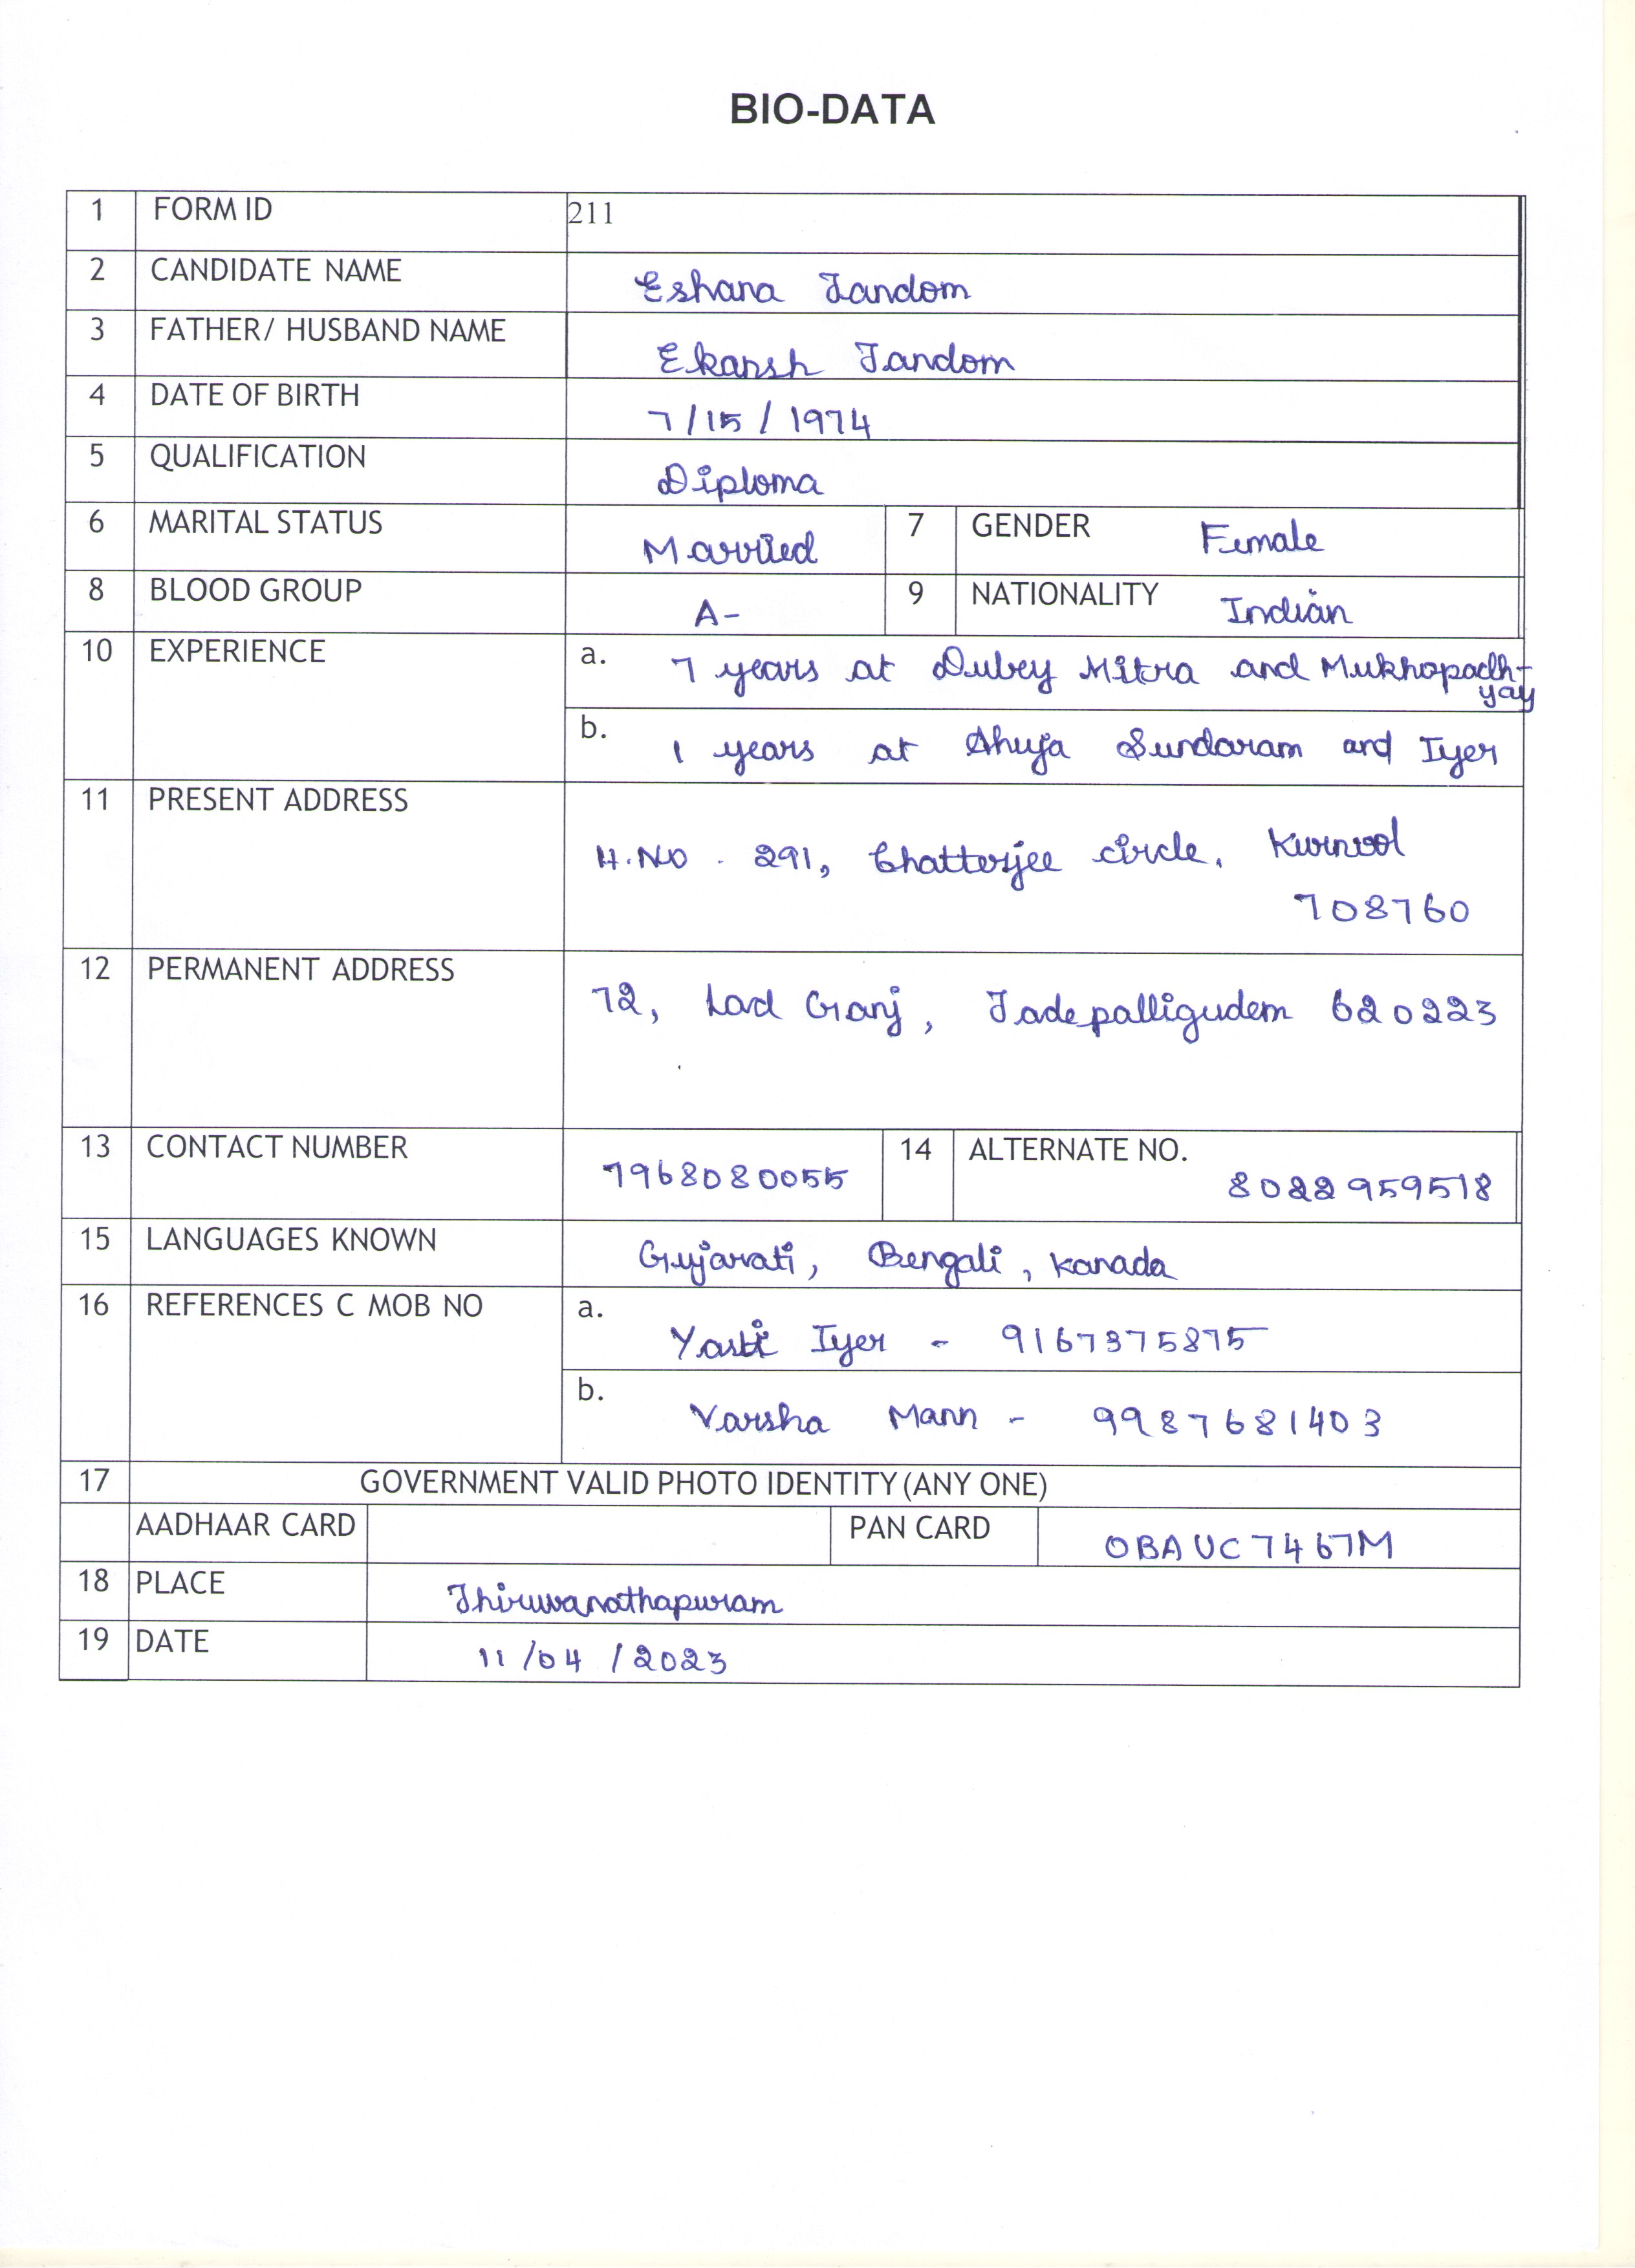 BIO-DATA
1 FORM ID 211
2 CANDIDATE NAME Eshana Tandom
3 FATHER/ HUSBAND NAME Ekansh Tandom
4 DATE OF BIRTH 7/15/1974
5 QUALIFICATION Diploma
6 MARITAL STATUS Married 7 GENDER Female
8 BLOOD GROUP A- 9 NATIONALITY Indian
10 EXPERIENCE a. 7 years at Dubey Mitra and Mukhopadh-
yay
b. 1 years at Ahuja Sundaram and Iyer
11 PRESENT ADDRESS
H.NO. 291, Chatterjee circle, Kurnool
708760
12 PERMANENT ADDRESS
72, Lad Ganj, Tadepalligudem 620223
13 CONTACT NUMBER 7968080055 14 ALTERNATE NO. 8022959518
15 LANGUAGES KNOWN Gujarati, Bengali, Kanada
16 REFERENCES C MOB NO a.
Iyer - 9167375875
b.
Varsha Mann - 9987681403
17 GOVERNMENT VALID PHOTO IDENTITY (ANY ONE)
AADHAAR CARD PAN CARD OBAUC7467M
18 PLACE Thiruvanathapuram
19 DATE 11/04/2023